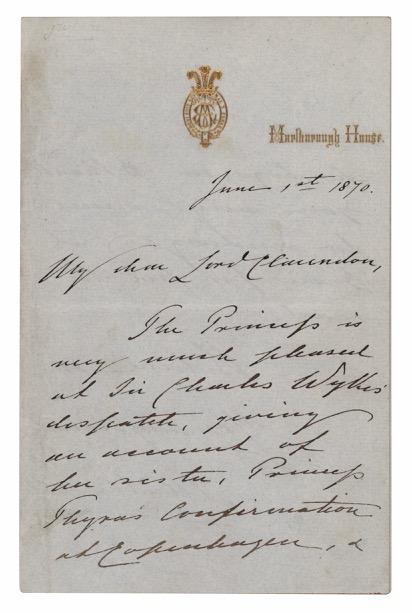 Marlborough House.
June 1st 1870.
My dear Lord Clarendon,
The Princess is
very much pleased
at Sir Charles Wyke's
despatch, giving
an account of
her sister, Princess
Thyra's Confirmation
at Copenhagen, &